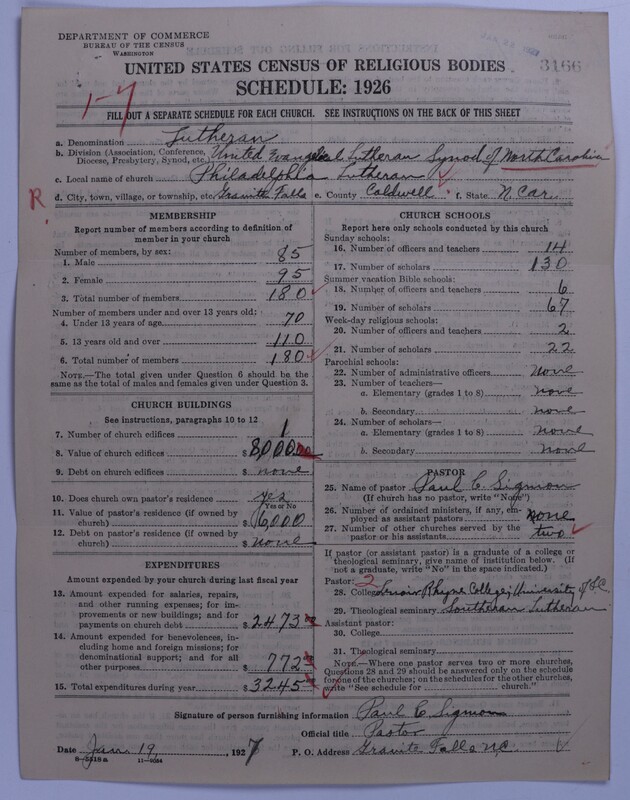 DEPARTMENT OF COMMERCE
BUREAU OF THE CENSUS
WASHINGTON
3166
UNITED STATES CENSUS OF RELIGIOUS BODIES
SCHEDULE: 1926
1-7
FILL OUT A SEPARATE SCHEDULE FOR EACH CHURCH. SEE INSTRUCTIONS ON THE BACK OF THIS SHEET
a. Denomination Lutheran
b. Division (Association, Conference, Diocese, Presbytery, Synod, etc.) United Evangelical Lutheran Synod of North Carolina
c. Local name of church Philadelphia Lutheran
R
d. City, town, village, or township, etc. Granite Falls e. County Caldwell f. State N. Car.
MEMBERSHIP
Report number of members according to definition of
member in your church
Number of members, by sex:
1. Male 85
2. Female 95
3. Total number of members 180
Number of members under and over 13 years old:
4. Under 13 years of age 70
5. 13 years old and over 110
6. Total number of members 180
NOTE.—The total given under Question 6 should be the
same as the total of males and females given under Question 3.
CHURCH BUILDINGS
See instructions, paragraphs 10 to 12
7. Number of church edifices 1
8. Value of church edifices $ 8,000.00
9. Debt on church edifices $ none
10. Does church own pastor's residence yes
Yes or No
11. Value of pastor's residence (if owned by
church) $ 6000
12. Debt on pastor's residence (if owned by
church) $ none
EXPENDITURES
Amount expended by your church during last fiscal year
13. Amount expended for salaries, repairs,
and other running expenses; for im-
provements or new buildings; and for
payments on church debt $ 2473
14. Amount expended for benevolences, in-
cluding home and foreign missions; for
denominational support; and for all
other purposes $ 772
15. Total expenditures during year $ 3245
CHURCH SCHOOLS
Report here only schools conducted by this church
Sunday schools:
16. Number of officers and teachers 14
17. Number of scholars 130
Summer vacation Bible schools:
18. Number of officers and teachers 6
19. Number of scholars 67
Week-day religious schools:
20. Number of officers and teachers 2
21. Number of scholars 22
Parochial schools:
22. Number of administrative officers none
23. Number of teachers—
a. Elementary (grades 1 to 8) none
b. Secondary none
24. Number of scholars—
a. Elementary (grades 1 to 8) none
b. Secondary none
PASTOR
25. Name of pastor Paul C. Sigmon
(If church has no pastor, write "None")
26. Number of ordained ministers, if any, em-
ployed as assistant pastors none
27. Number of other churches served by the
pastor or his assistants two
If pastor (or assistant pastor) is a graduate of a college or
theological seminary, give name of institution below. (If
not a graduate, write "No" in the space indicated.)
Pastor: 2
28. College Lenoir Rhyne College; University of S.C.
29. Theological seminary Southeran Lutheran
Assistant pastor:
30. College
31. Theological seminary
NOTE.—Where one pastor serves two or more churches,
Questions 28 and 29 should be answered only on the schedule
for one of the churches; on the schedules for the other churches,
write "See schedule for church."
Signature of person furnishing information Paul C Sigmon
Official title Pastor
Date Jan 19, 1927 P. O. Address Granite Falls N.C.
8—5518a 11—9084